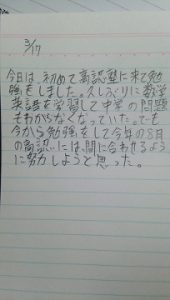 3/17
今日は、初めて高認塾に来て勉
強をしました。久しぶりに数学
英語を学習して中学の問題
もわからなくなっていた。でも
今から勉強をして今年の8月
の高認には、間に合わせるよう
に努力しようと思った。